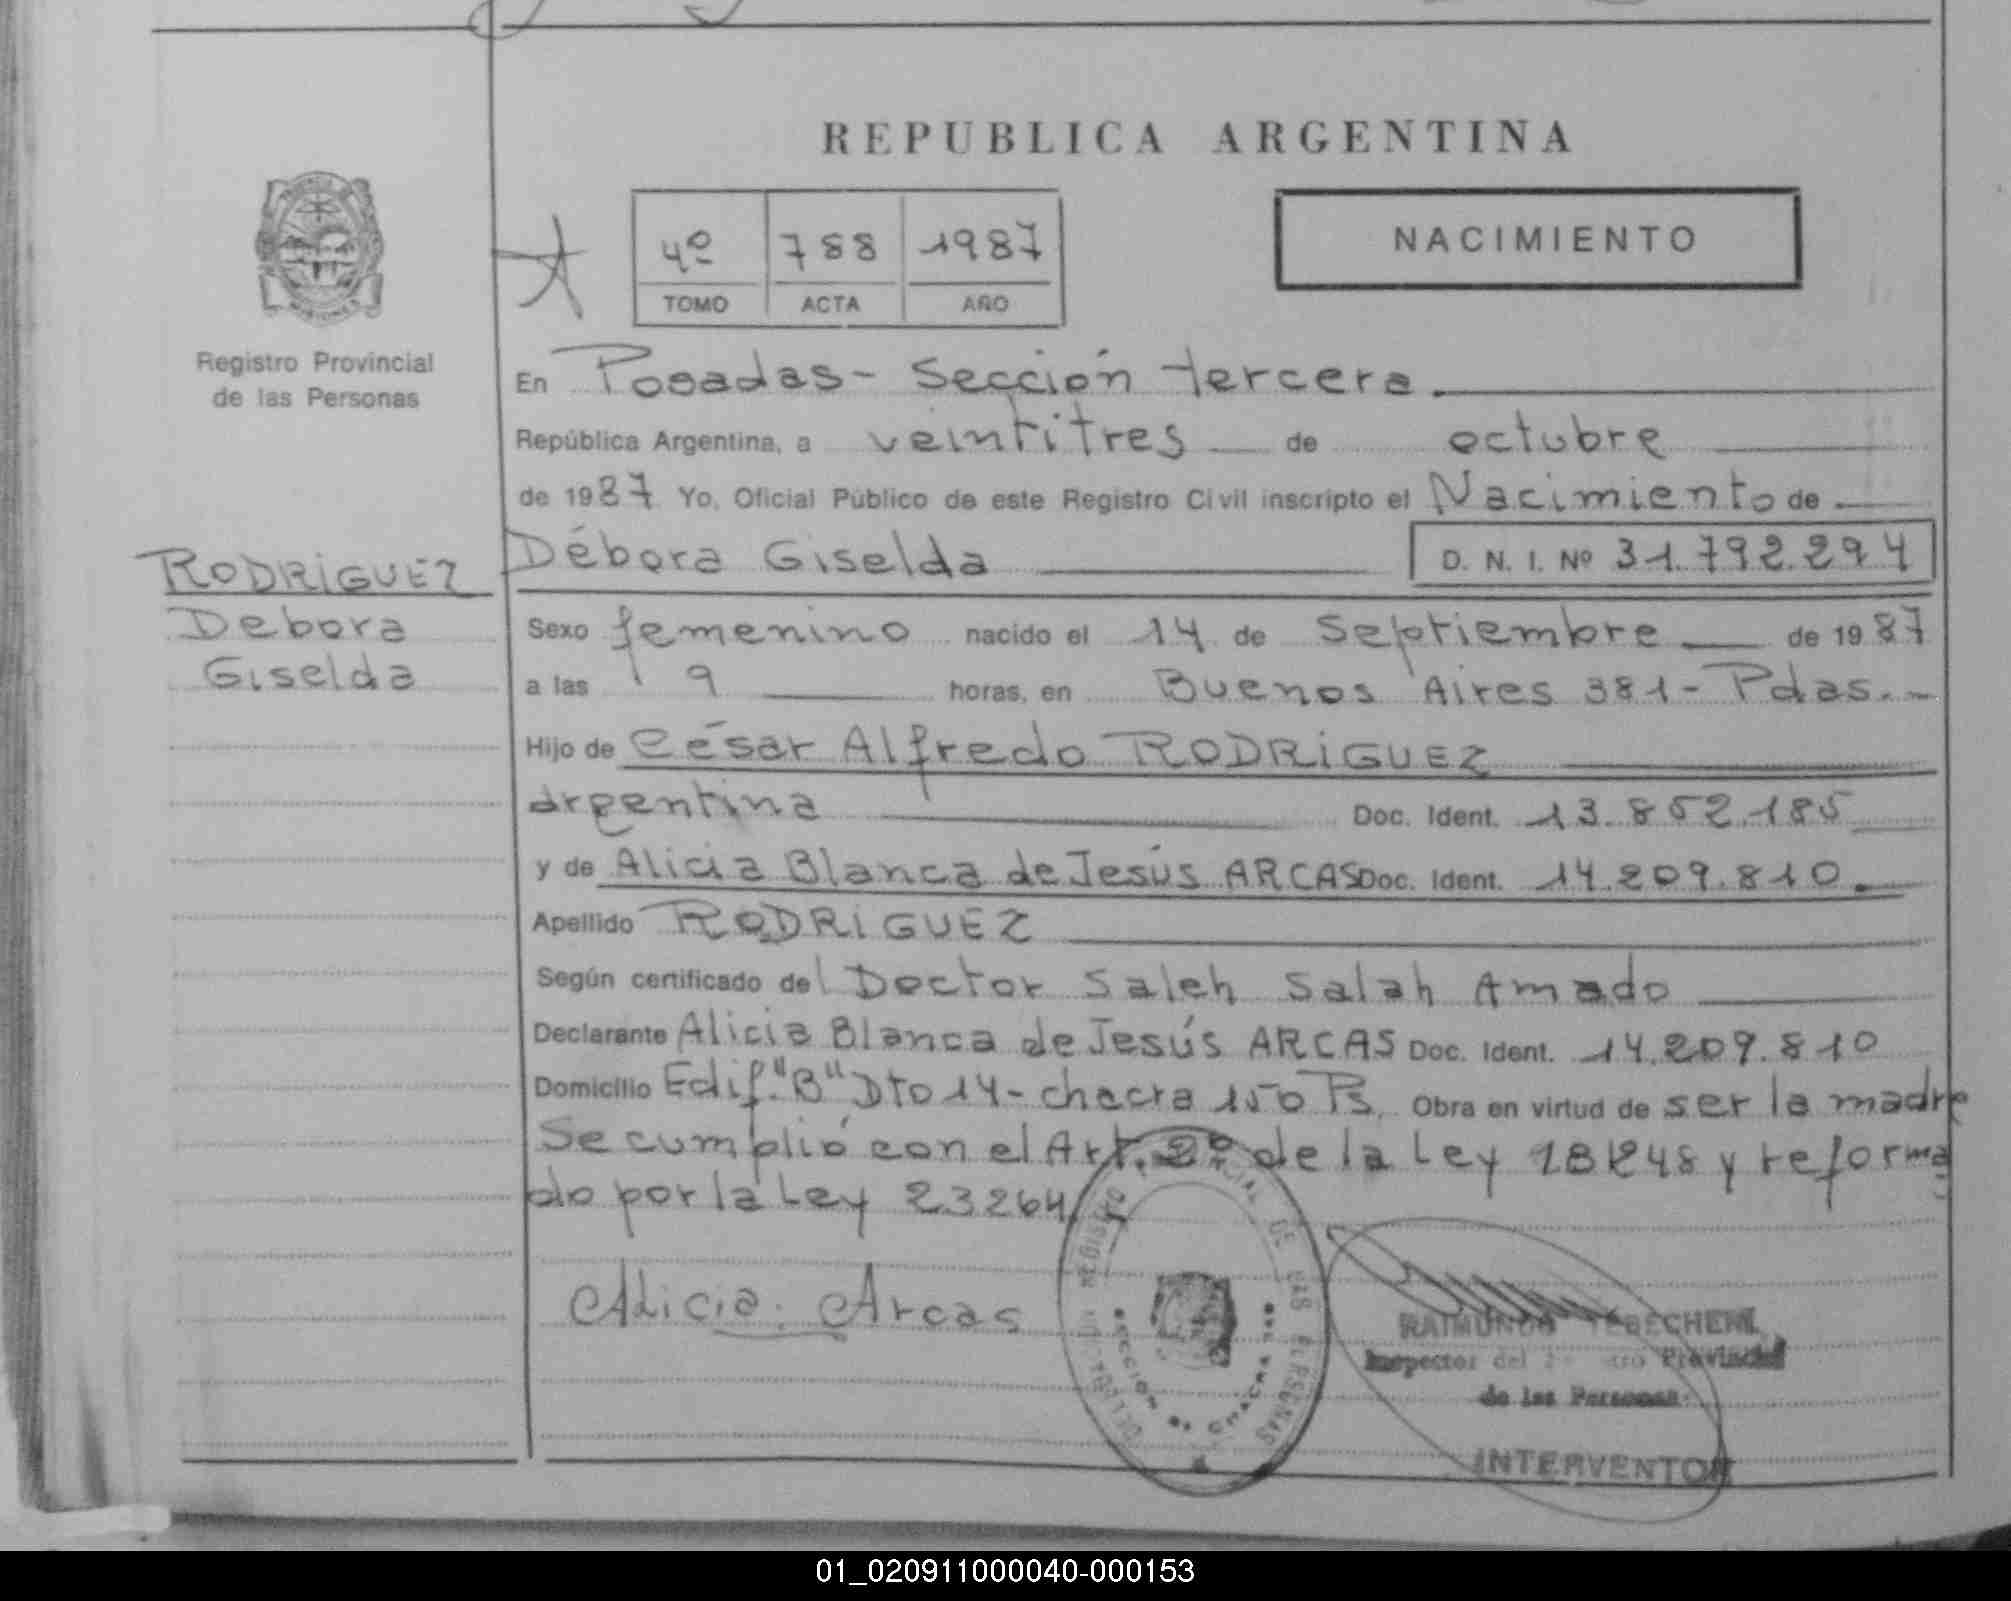 REPUBLICA ARGENTINA
4º 788 1987
TOMO ACTA AÑO
NACIMIENTO
Registro Provincial
de las Personas
RODRIGUEZ
Debora
Giselda
En Posadas - Sección tercera.
República Argentina, a veintitres de octubre
de 1987 Yo, Oficial Público de este Registro Civil inscripto el Nacimiento de
Débora Giselda D. N. I. Nº 31.792.294
Sexo femenino nacido el 14 de Septiembre de 1987
a las 9 horas, en Buenos Aires 381 - Pdas.
Hijo de César Alfredo RODRIGUEZ
argentina Doc. Ident. 13.852.185
y de Alicia Blanca de Jesús ARCAS Doc. Ident. 14.209.810.
Apellido RODRIGUEZ
Según certificado del Doctor Saleh Salah Amado
Declarante Alicia Blanca de Jesús ARCAS Doc. Ident. 14.209.810
Domicilio Edif. "B" Dto 14 - chacra 150 Ps. Obra en virtud de ser la madre
Se cumplió con el Art. 2º de la Ley 18248 y reforma
do por la Ley 23264
Alicia Arcas
REGISTRO PROVINCIAL DE LAS PERSONAS
SECCION CHACRA
RAIMUNDO
Inspector del Provincial
de las Personas
INTERVENTOR
01_020911000040-000153